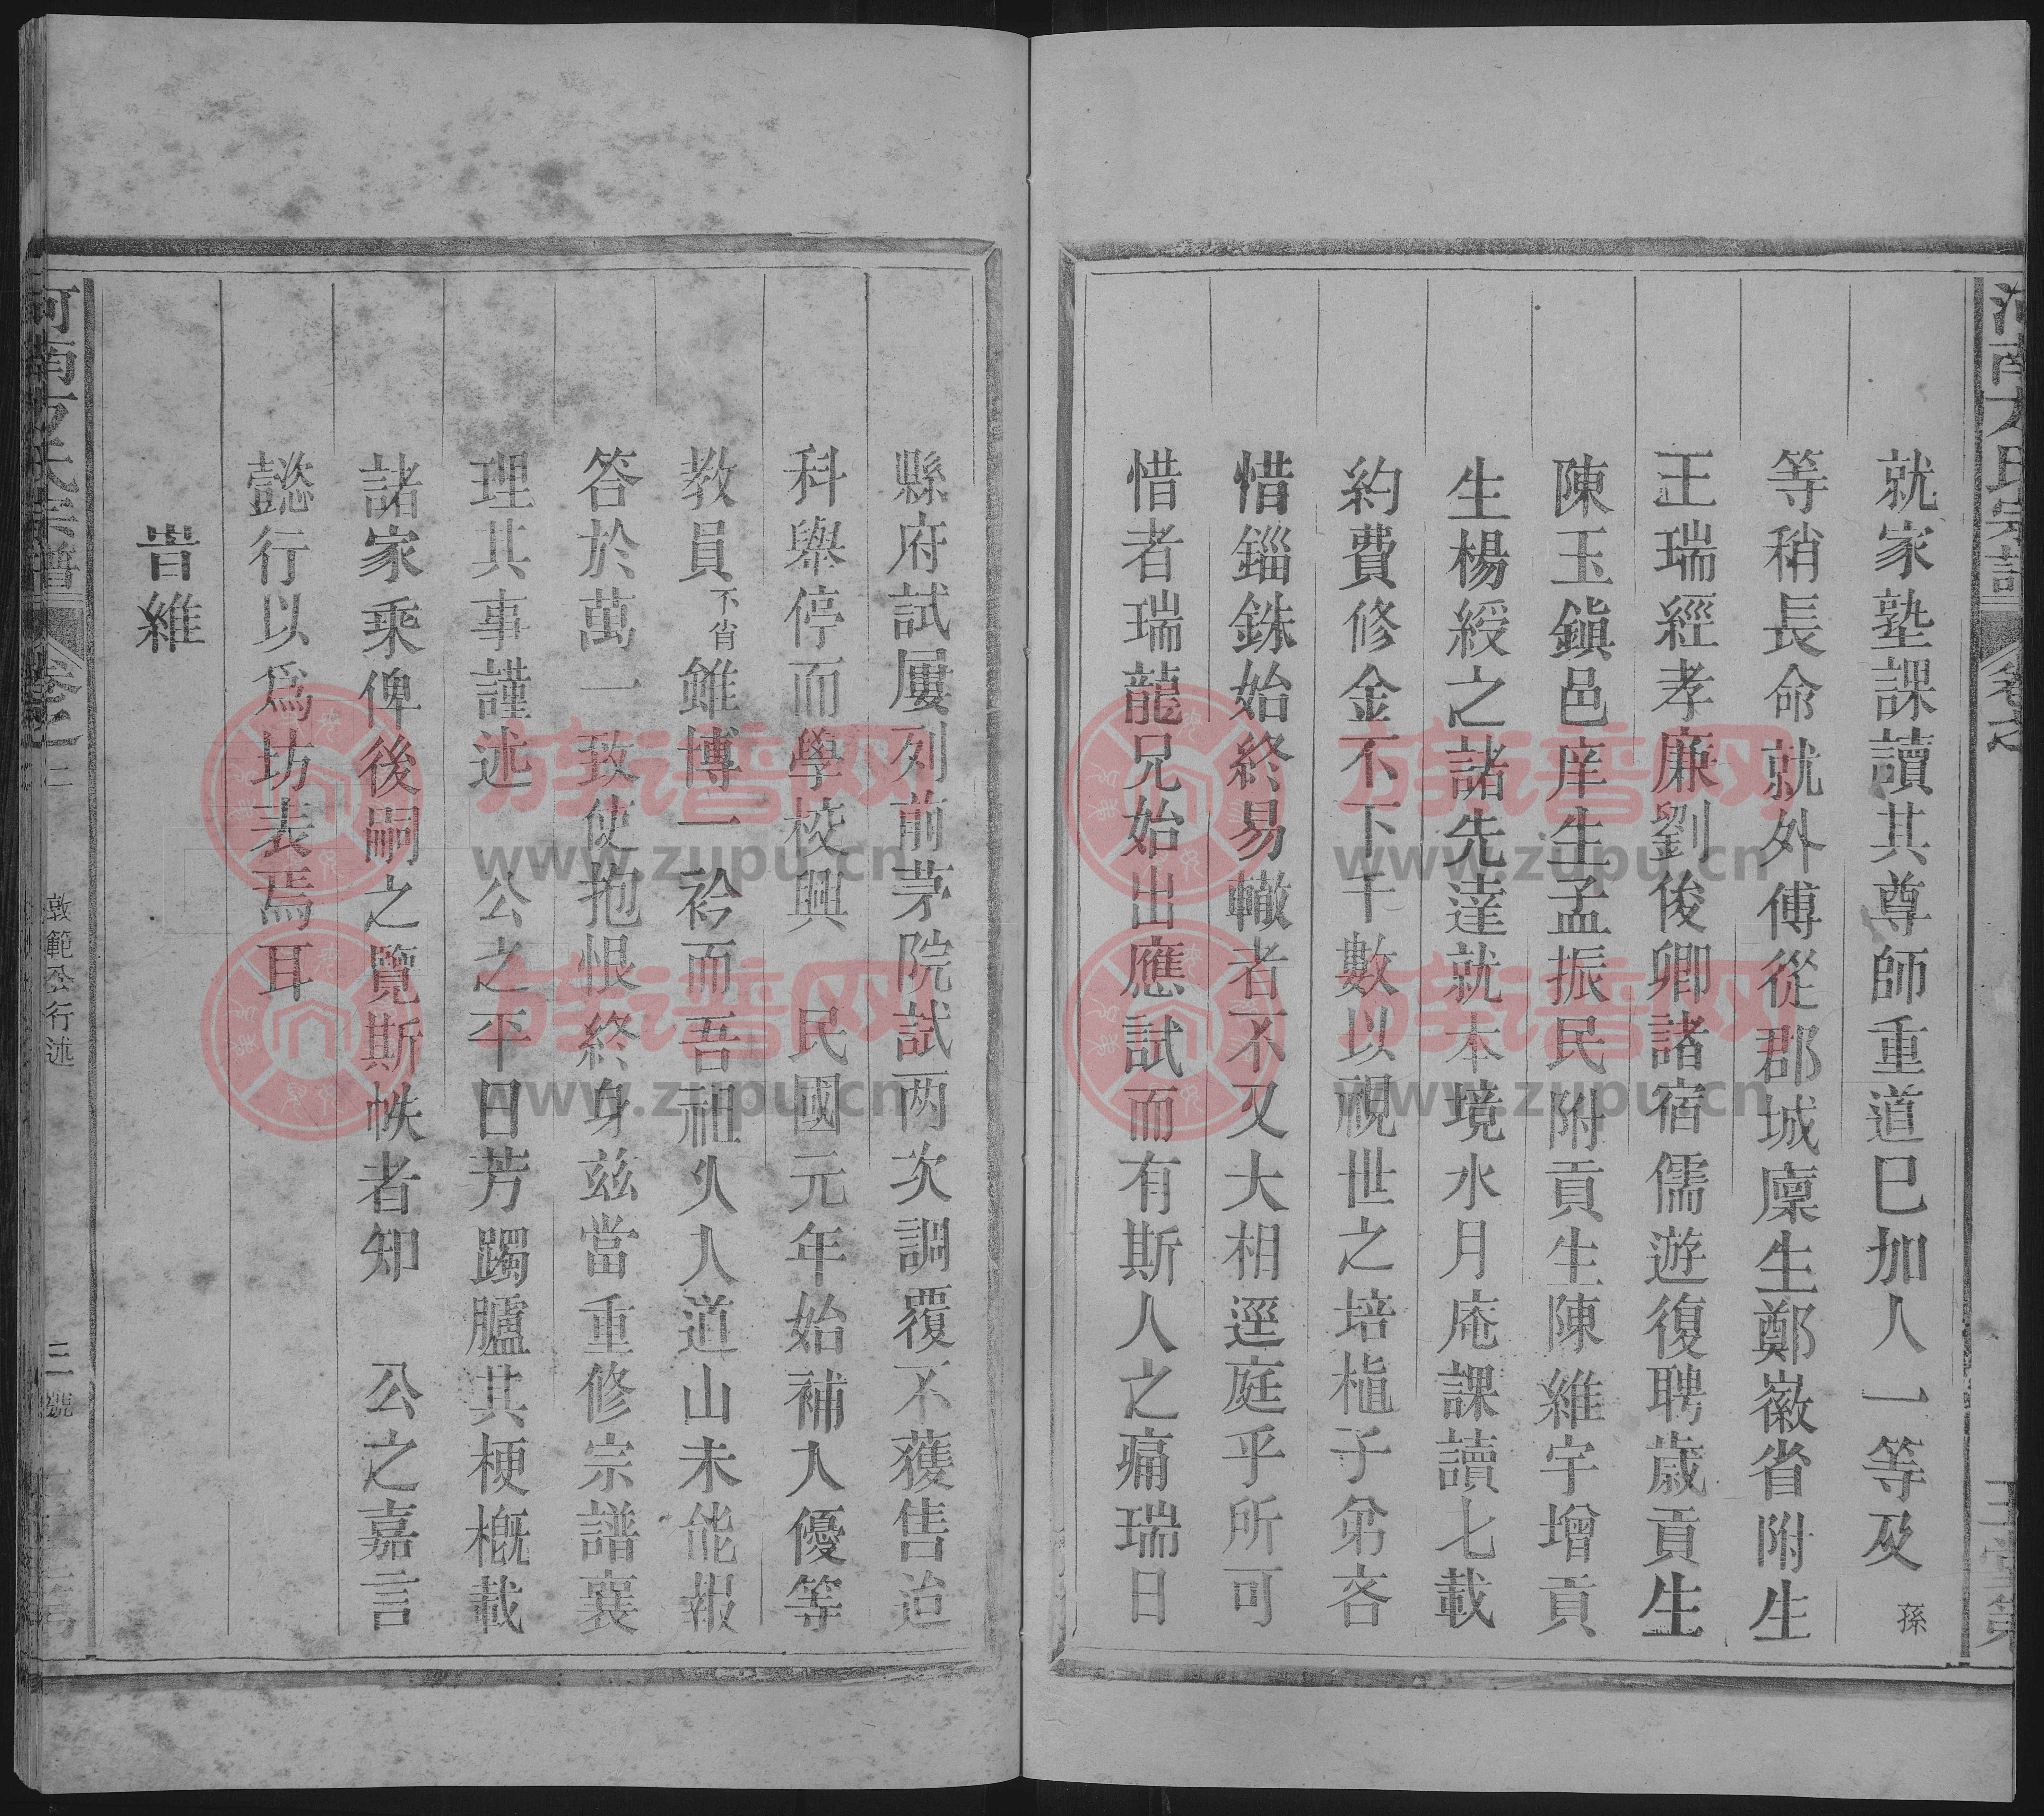 就家塾課讀其尊師重道已加人一等及孫
等稍長命就外傅從郡城廩生鄭嶶省附生
王瑞經孝廉劉俊卿諸宿儒遊復聘歲貢生
陳玉鎭邑庠生孟振民附貢生陳維宇增貢
生楊綬之諸先達就本境水月庵課讀七載
約費修金不下千數以視世之培植子弟吝
惜錙銖始終易轍者不又大相逕庭乎所可
惜者瑞龍兄始出應試而有斯人之痛瑞日
縣府試屢列前茅院試兩次調覆不獲售迨
科舉停而學校興 民國元年始補入優等
教員不肖雖博一衿而吾祖久入道山未能報
答於萬一致使抱恨終身兹當重修宗譜襄
理其事謹述 公之平日芳躅臚其梗概載
諸家乘俾後嗣之覽斯帙者知 公之嘉言
懿行以爲坊表焉耳
旹維
敦範公行述
三號
河南方氏宗譜
www.zupu.cn
www.zupu.cn
www.zupu.cn
www.zupu.cn
族谱网
族谱网
族谱网
族谱网